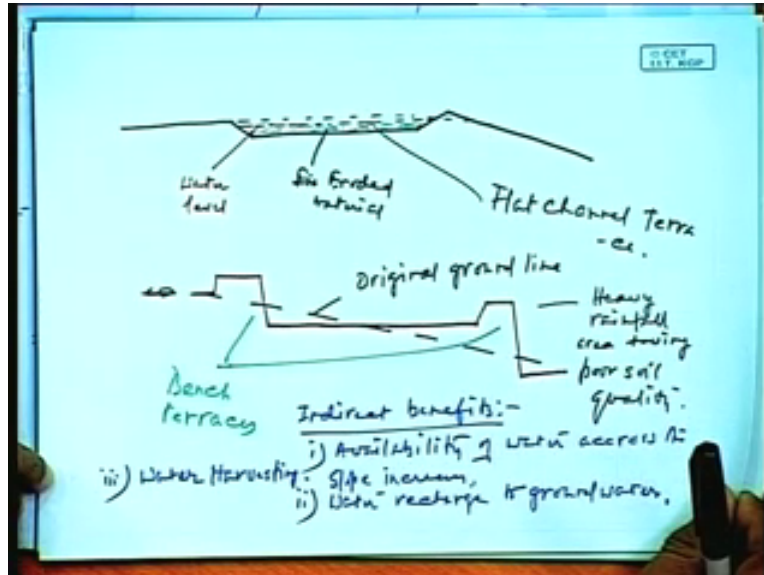 © CET
I.I.T. KGP
Water
level
Eroded
material
Flat channel Terra
-ce.
Original ground line
Heavy
rainfall
area having
poor soil
quality.
Bench
terraces
Indirect benefits:-
i) Availability of water accross the
slope increases,
ii) Water recharge to groundwater.
iii) Water Harvesting.